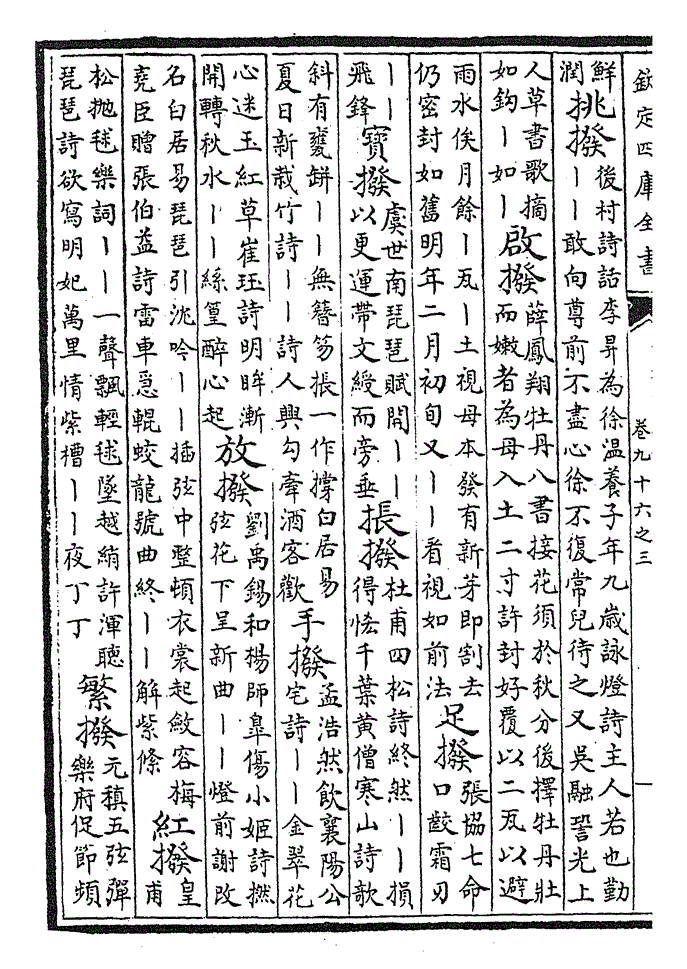 欽定四庫全書 卷九十六之三
鮮
潤
挑撥
後村詩話李昪為徐温養子年九歳詠燈詩主人若也勤
丨丨敢向尊前不盡心徐不復常兒待之又吳融䛒光上
人草書歌摘
如鈎丨如丨
啟撥
薛鳳翔牡丹八書接花須於秋分後擇牡丹壯
而嫩者為母入土二寸許封好覆以二瓦以避
雨水俟月餘丨瓦丨土視母本發有新芽即割去
仍密封如舊明年二月初旬又丨丨看視如前法
足撥
張協七命
口齩霜刃
丨丨
飛鋒
寳撥
虞世南琵琶賦開丨丨
以更運帶文綬而旁垂
掁撥
杜甫四松詩終然丨丨損
得恡千葉黄僧寒山詩歌
斜有甕缾丨丨無簪笏掁一作撐白居易
夏日新栽竹詩丨丨詩人興勾牽酒客歡
手撥
孟浩然飲襄陽公
宅詩丨丨金翠花
心迷玉紅草崔珏詩明眸漸
開轉秋水丨丨絲篁醉心起
放撥
劉禹錫和楊師臯傷小姬詩撚
弦花下呈新曲丨丨燈前謝改
名白居易琵琶引沈吟丨丨插弦中整頓衣裳起斂容梅
堯臣贈張伯益詩雷車急輥蛟龍號曲終丨丨解紫條
紅撥
皇
甫
松抛毬樂詞丨丨一聲飄輕毬墜越綃許渾聽
琵琶詩欲寫明妃萬里情紫槽丨丨夜丁丁
繁撥
元稹五弦彈
樂府促節頻